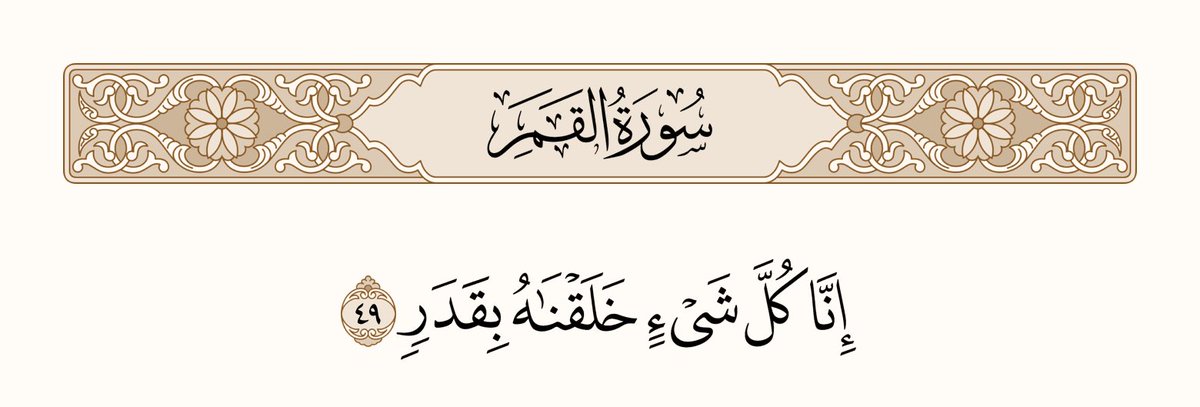 سُورَةُ القَمَرِ
إِنَّا كُلَّ شَىْءٍ خَلَقْنَٰهُ بِقَدَرٍ ٤٩